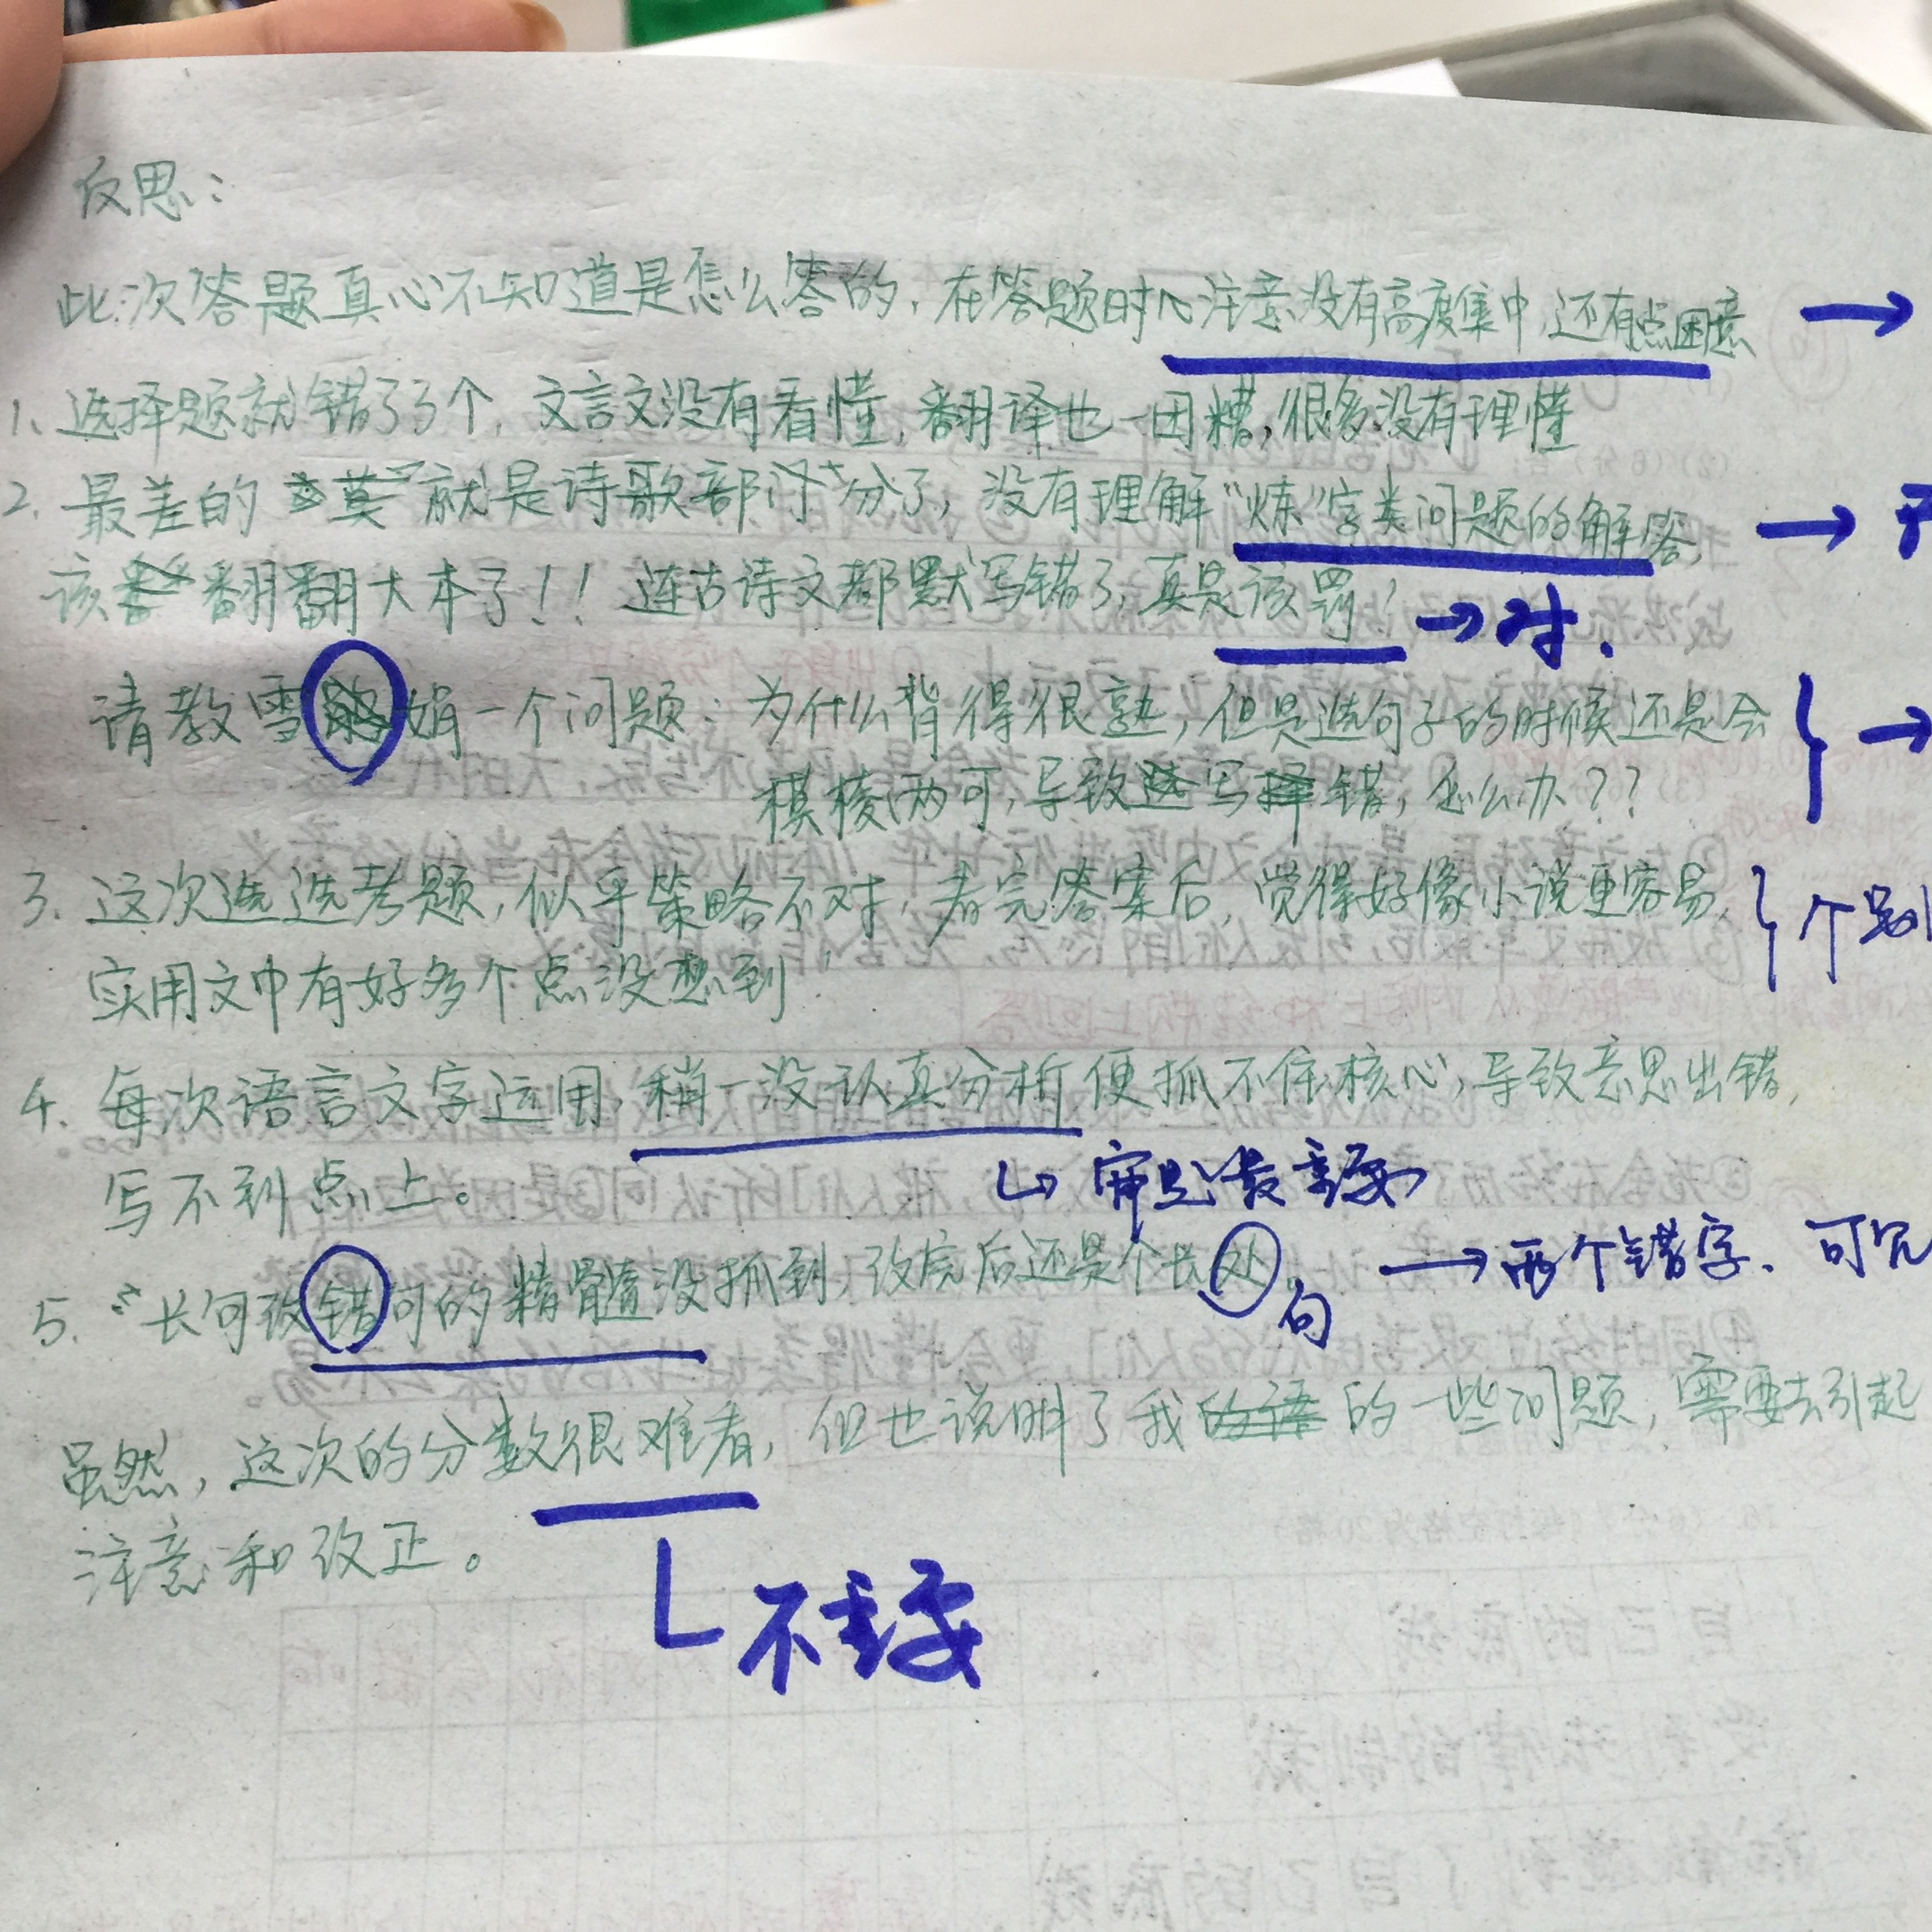 反思：
此次答题真心不知道是怎么答的，在答题时心注意没有高度集中，还有点困意 →
1、选择题就错了3个，文言文没有看懂，翻译也一团糟，很多没有理懂
2、最差的莫就是诗歌部分了，没有理解“炼”字类问题的解答， →
该翻翻大本了！！连古诗文都默写错了，真是该罚！ →对.
请教雪娟一个问题：为什么背得很熟，但是选句子的时候还是会 →
模棱两可，导致写错，怎么办？？
3. 这次选选考题，似乎策略不对，看完答案后，觉得好像小说更容易， 个别
实用文中有好多个点没想到
4. 每次语言文字运用，稍一没认真分析便抓不住核心，导致意思出错，
写不到点上。
审题最重要
5. 长句改错句的精髓没抓到，改完后还是个长处。 句 →两个错字、可见
虽然，这次的分数很难看，但也说明了我的一些问题，需要去引起
注意和改正。
不重要